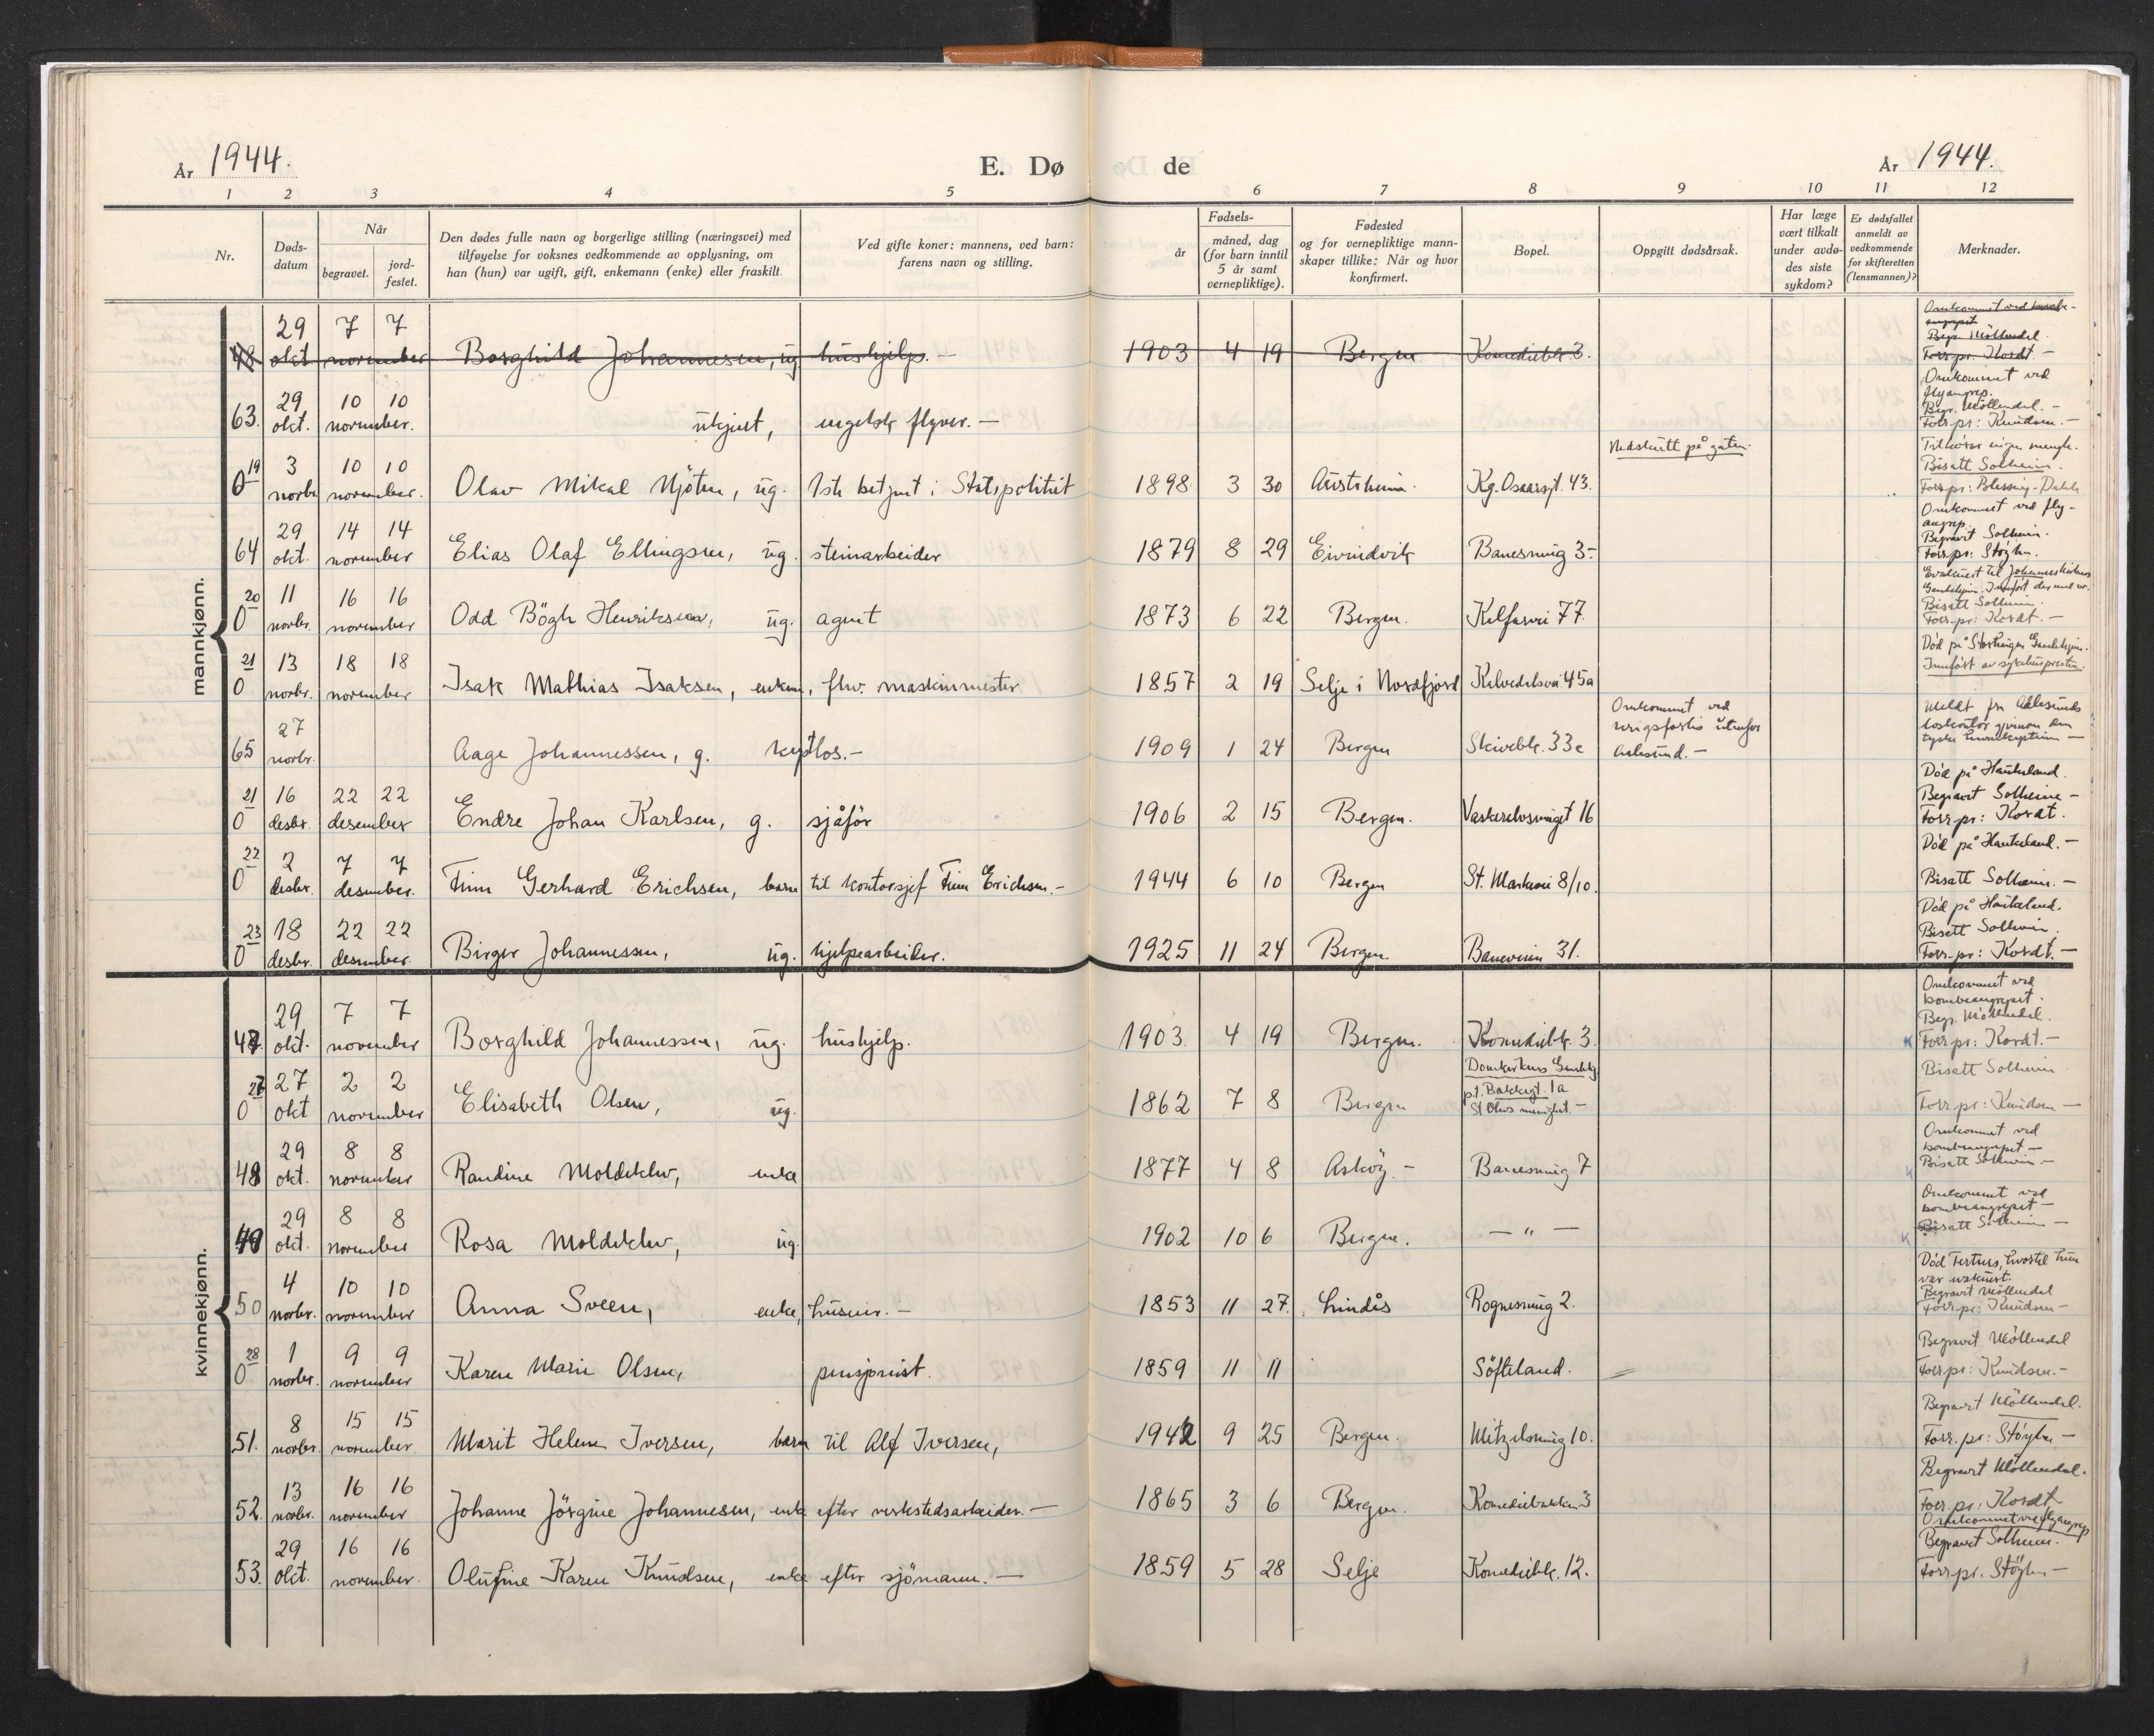 År 1944.
E. Dø de
År 1944.
1 2 3 4 5 6 7 8 9 10 11 12
Nr.
Døds-
datum
Når
begravet.
jord-
festet.
Den dødes fulle navn og borgerlige stilling (næringsvei) med
tilføyelse for voksnes vedkommende av opplysning, om
han (hun) var ugift, gift, enkemann (enke) eller fraskilt.
Ved gifte koner: mannens, ved barn:
farens navn og stilling.
Fødsels-
år
måned, dag
(for barn inntil
5 år samt
vernepliktige).
Fødested
og for vernepliktige mann-
skaper tillike: Når og hvor
konfirmert.
Bopel.
Oppgitt dødsårsak.
Har læge
vært tilkalt
under avdø-
des siste
sykdom?
Er dødsfallet
anmeldt av
vedkommende
for skifteretten
(lensmannen)?
Merknader.
mannkjønn.
29 7 7
48 okt november Borghild Johannesen, ug. hushjelp. — 1903 4 19 Bergen Komediebk. 3.
Omkommet ved bombe-
angrepet
Begr. Möllendal.
Forr.pr. Kordt. —
29 10 10
63. okt. november. ukjent, engelsk flyver. —
Omkommet ved
flyangrep.
Begr. Möllendal. —
Forr.pr: Knudsen. —
19 3 10 10
0 novbr. november. Olav Mikal Njöten, ug. 1ste betjent i Statspolitiet 1898 3 30 Austrheim. Kg. Oscarsgt. 43.
Nedskutt på gaten.
Tilhörer ingen menigh.
Bisatt Solheim.
Forr.pr: Blessing-Dahle
29 14 14
64 okt. november Elias Olaf Ellingsen, ug. steinarbeider 1879 8 29 Eivindvik Banesmug 3-
Omkommet ved fly-
angrep.
Begravet Solheim.
Forr.pr: Stöylen.
20 11 16 16
0 novbr. november Odd Bögh Henriksen, ug. agent 1873 6 22 Bergen. Kalfarvei 77.
Evakuert til Johanneskirkens
Gamlehjem. Innfört der med nr.
Bisatt Solheim.
Forr.pr: Kordt. —
21 13 18 18
0 novbr. november Isak Mathias Isaksen, enkem., fhv. maskinmester 1857 2 19 Selje i Nordfjord Kalvedalsvei 45a
Död på Storhaugen Gamlehjem.
Innfört av sykehuspresten.
27
65 novbr. Aage Johannessen, g. kystlos. — 1909 1 24 Bergen Skivebk. 33c
Omkommet ved
krigsforlis utenfor
Aalesund. —
Meldt fra Aalesunds
loskontor gjennom den
tyske
21 16 22 22
0 desbr. desember Endre Johan Karlsen, g. sjåför 1906 2 15 Bergen. Vaskerelvsmuget 16
Död på Haukeland.
Begravet Solheim —
Forr.pr: Kordt.
22 2 7 7
0 desbr. desember. Finn Gerhard Erichsen, barn til kontorsjef Finn Erichsen. — 1944 6 10 Bergen St. Markvei 8/10.
Död på Haukeland. —
Bisatt Solheim. —
23 18 22 22
0 desbr. desember. Birger Johannessen, ug. hjelpearbeider. 1925 11 24 Bergen. Baneveien 31.
Död på Haukeland.
Bisatt Solheim.
Forr.pr: Kordt. —
kvinnekjønn.
29 7 7
47. okt. november Borghild Johannessen, ug. hushjelp. 1903. 4 19 Bergen. Komediebk. 3.
Omkommet ved
bombeangrepet.
Begr. Möllendal.
K Forr.pr: Kordt. —
27 27 2 2
0 okt november Elisabeth Olsen, ug. 1862 7 8 Bergen
Domkirkens Gamlehj.
p.t. Bakkegt. 1a
St Olavs menighet. —
Bisatt Solheim
Forr.pr: Knudsen —
29 8 8
48 okt. november Randine Moldeklev, enke 1877 4 8 Asköy. — Banesmug 7
Omkommet ved
bombeangrepet —
K Bisatt Solheim. —
29 8 8
49 okt. november Rosa Moldeklev, ug. 1902 10 6 Bergen. — " —
Omkommet ved
bombeangrepet —
K Bisatt Solheim —
4 10 10
50 novbr. november Anna Sveen, enke, husmor. — 1853 11 27. Lindås Rognesmug 2.
Död Tertnes, hvortil hun
var evakuert.
Begravet Möllendal
Forr.pr: Knudsen —
28 1 9 9
0 novbr. november Karen Marie Olsen, pensjonist. 1859 11 11 Söfteland.
Begravet Möllendal
Forr.pr: Knudsen. —
8 15 15
51. novbr. november. Marit Helene Iversen, barn til Alf Iversen, 1942 9 25 Bergen. Mitzelsmug 10.
Begravet Möllendal.
Forr.pr: Stöylen —
13 16 16
52. novbr. november Johanne Jörgine Johannesen, enke efter verkstedsarbeider. — 1865 3 6 Bergen. Komediebakken 3
Begravet Möllendal.
Forr.pr: Kordt
29 16 16
53. okt. november. Olufine Karen Knudsen, enke efter sjömann. — 1859 5 28 Selje Komediebk. 12.
Omkommet ved flyangrep
Begravet Solheim.
Forr.pr. Stöylen —